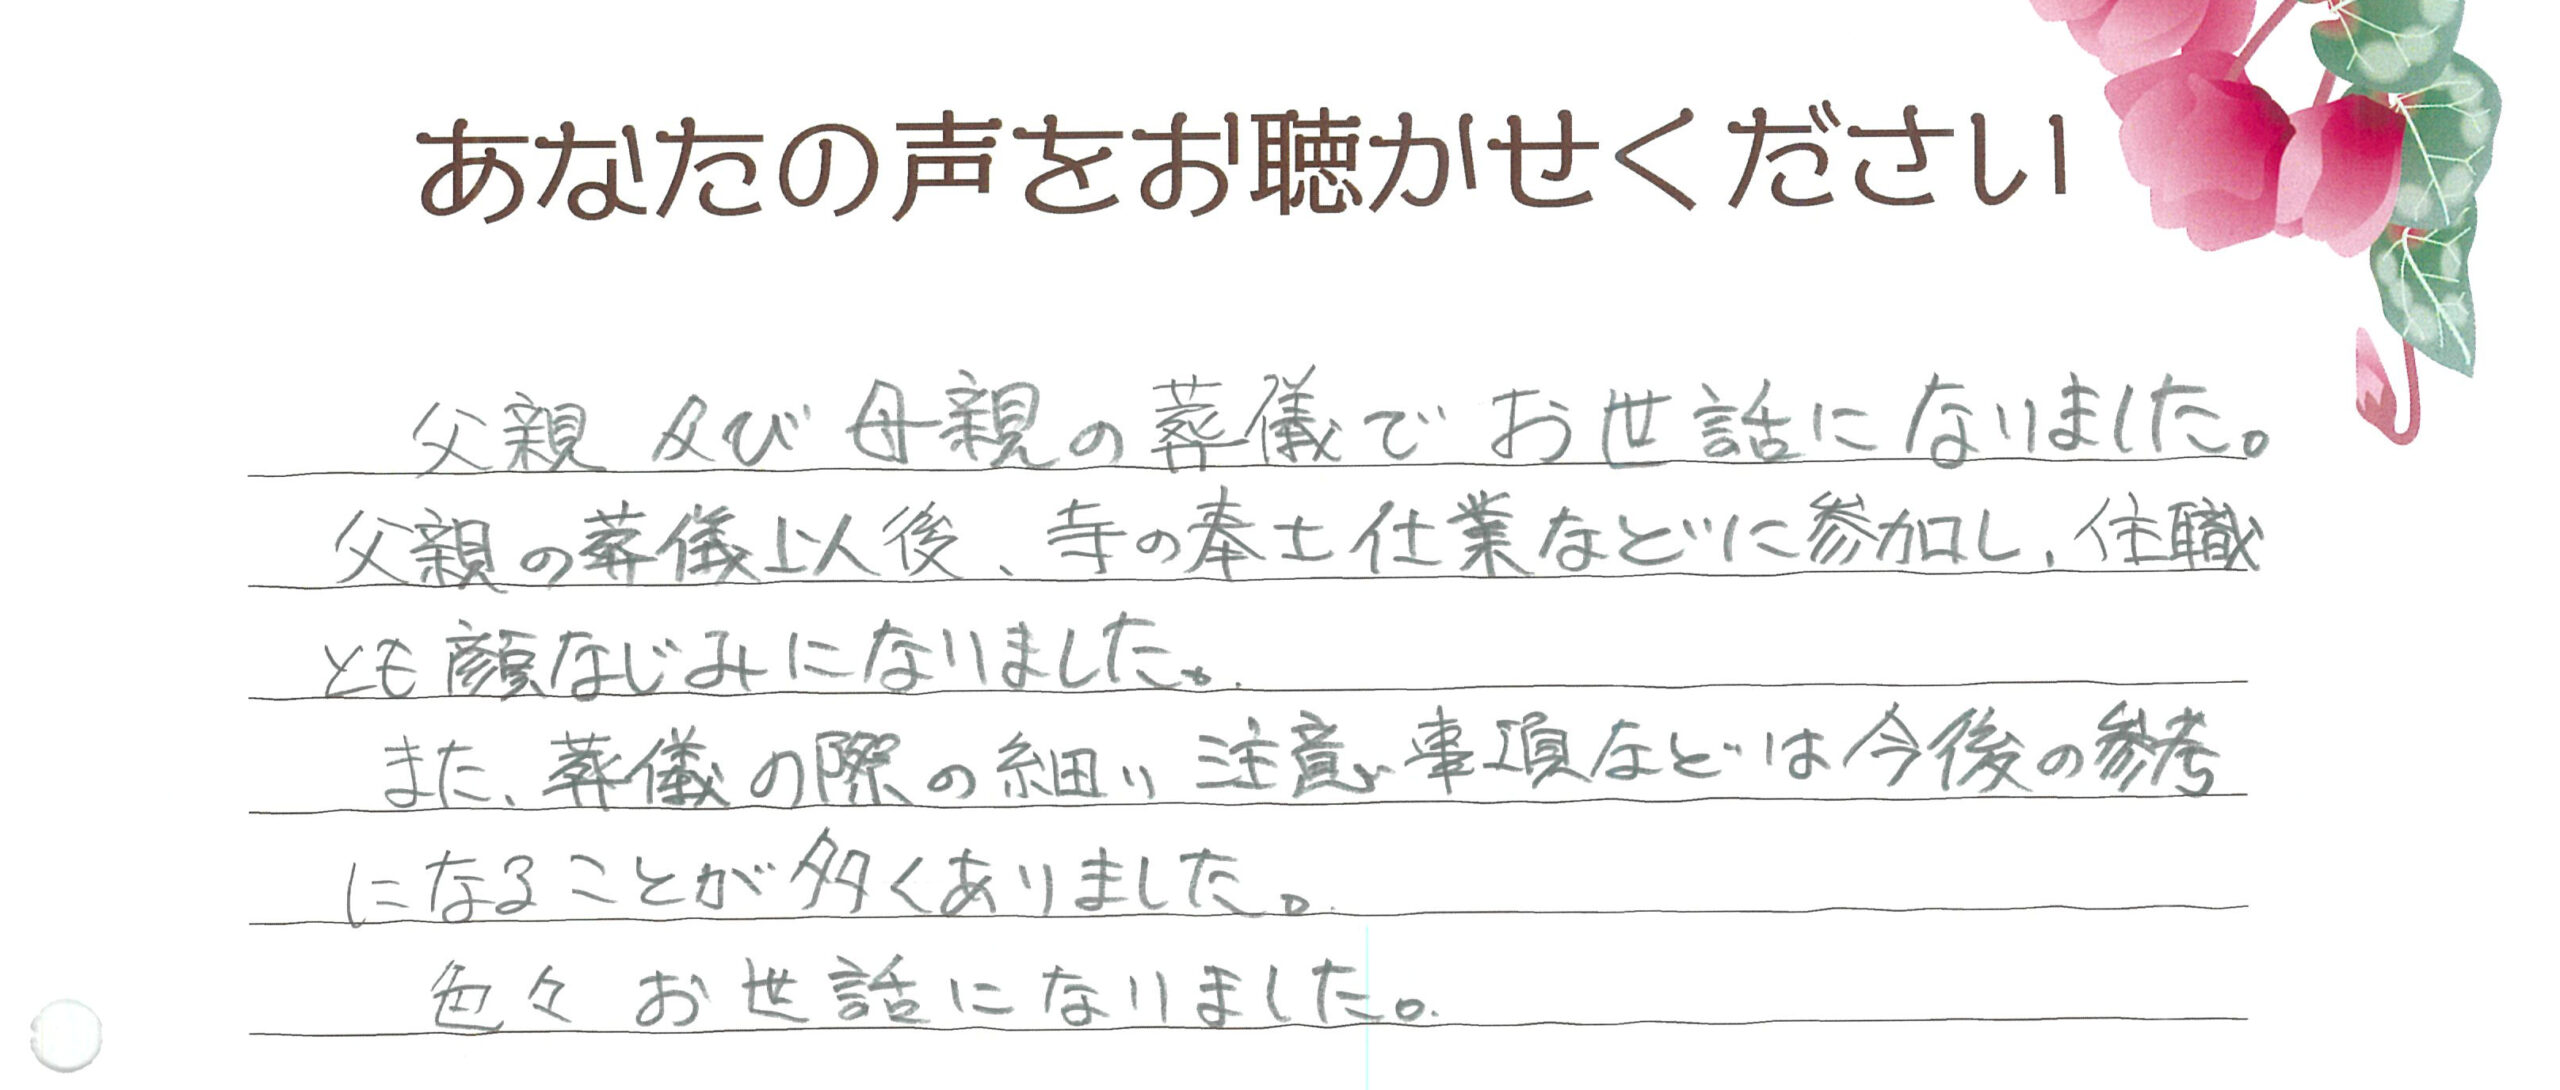 あなたの声をお聴かせください
父親及び母親の葬儀でお世話になりました。
父親の葬儀以後、寺の奉士仕業などに参加し、住職
とも顔なじみになりました。
また、葬儀の際の細い注意事項などは今後の参考
になることが多くありました。
色々お世話になりました。